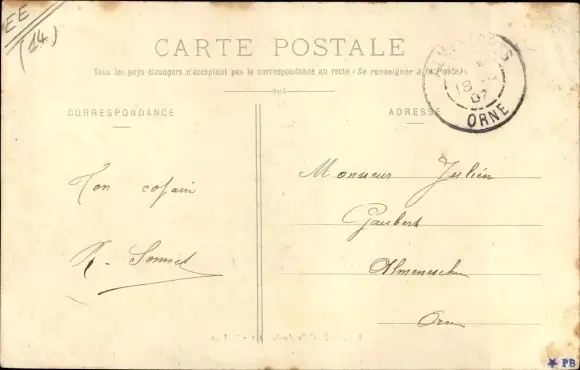 EE
(14)
CARTE POSTALE
Tous les pays étrangers n'acceptent pas la correspondance au recto (Se renseigner à la Poste)
CORRESPONDANCE
ADRESSE
18
07
ORNE
Ton copain
R. Sonnet
Monsieur Julien
Gaubert
Almenesches
Orne
PB